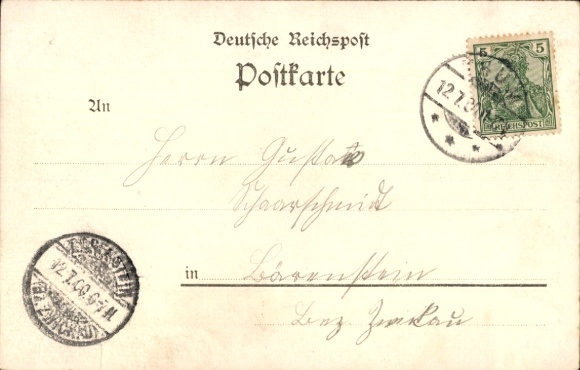 Deutsche Reichspost
Postkarte
5 5
REICHSPOST
12.7.00
An
Herrn Gustav
Schaarschmidt
in Bärenstein
Bez. Zwickau
12.7.00. 6-7 N